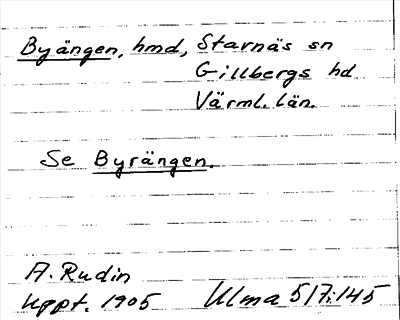 Byängen, hmd, Starnäs sn
Gillbergs hd
Värml. län.
Se Byrängen.
A. Rudin
Uppt. 1905
Ulma 517:145